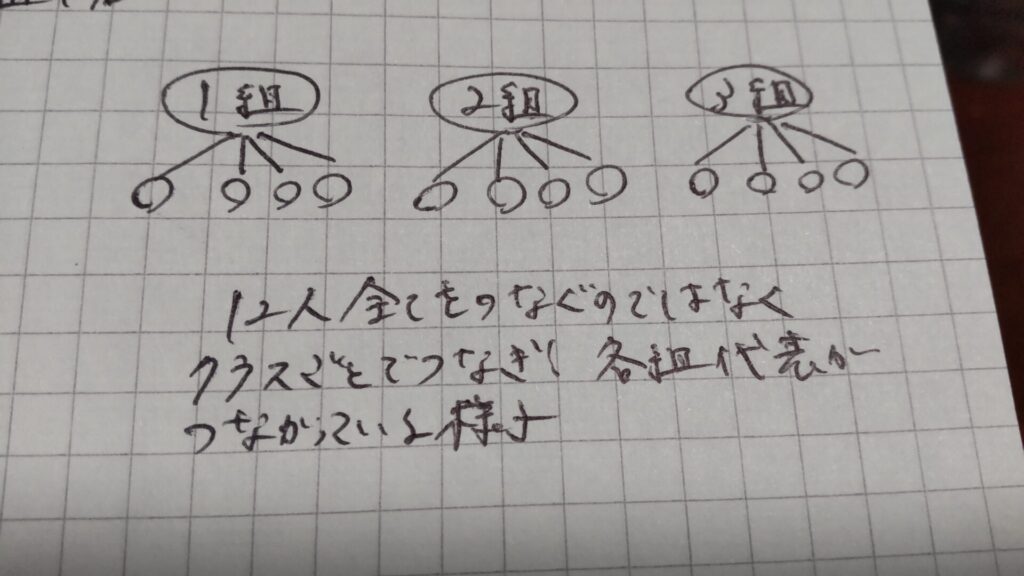 1組 2組 3組
12人全てをつなぐのではなく
クラスごとでつなぎ、各組代表が
つながっている様子